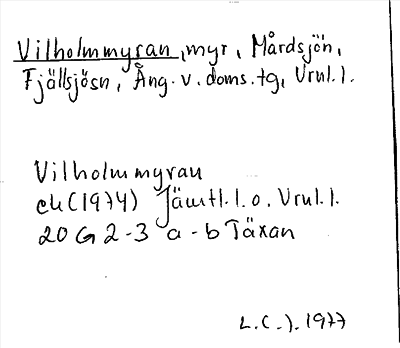 Vilholmmyran, myr, Mårdsjön,
Fjällsjösn, Ång. v. doms. tg, Vrnl. l.
Vilholmmyran
ek (1974) Jämtl. l. o. Vrnl. l.
20 G 2-3 a-b Täxan
L. C-). 1977